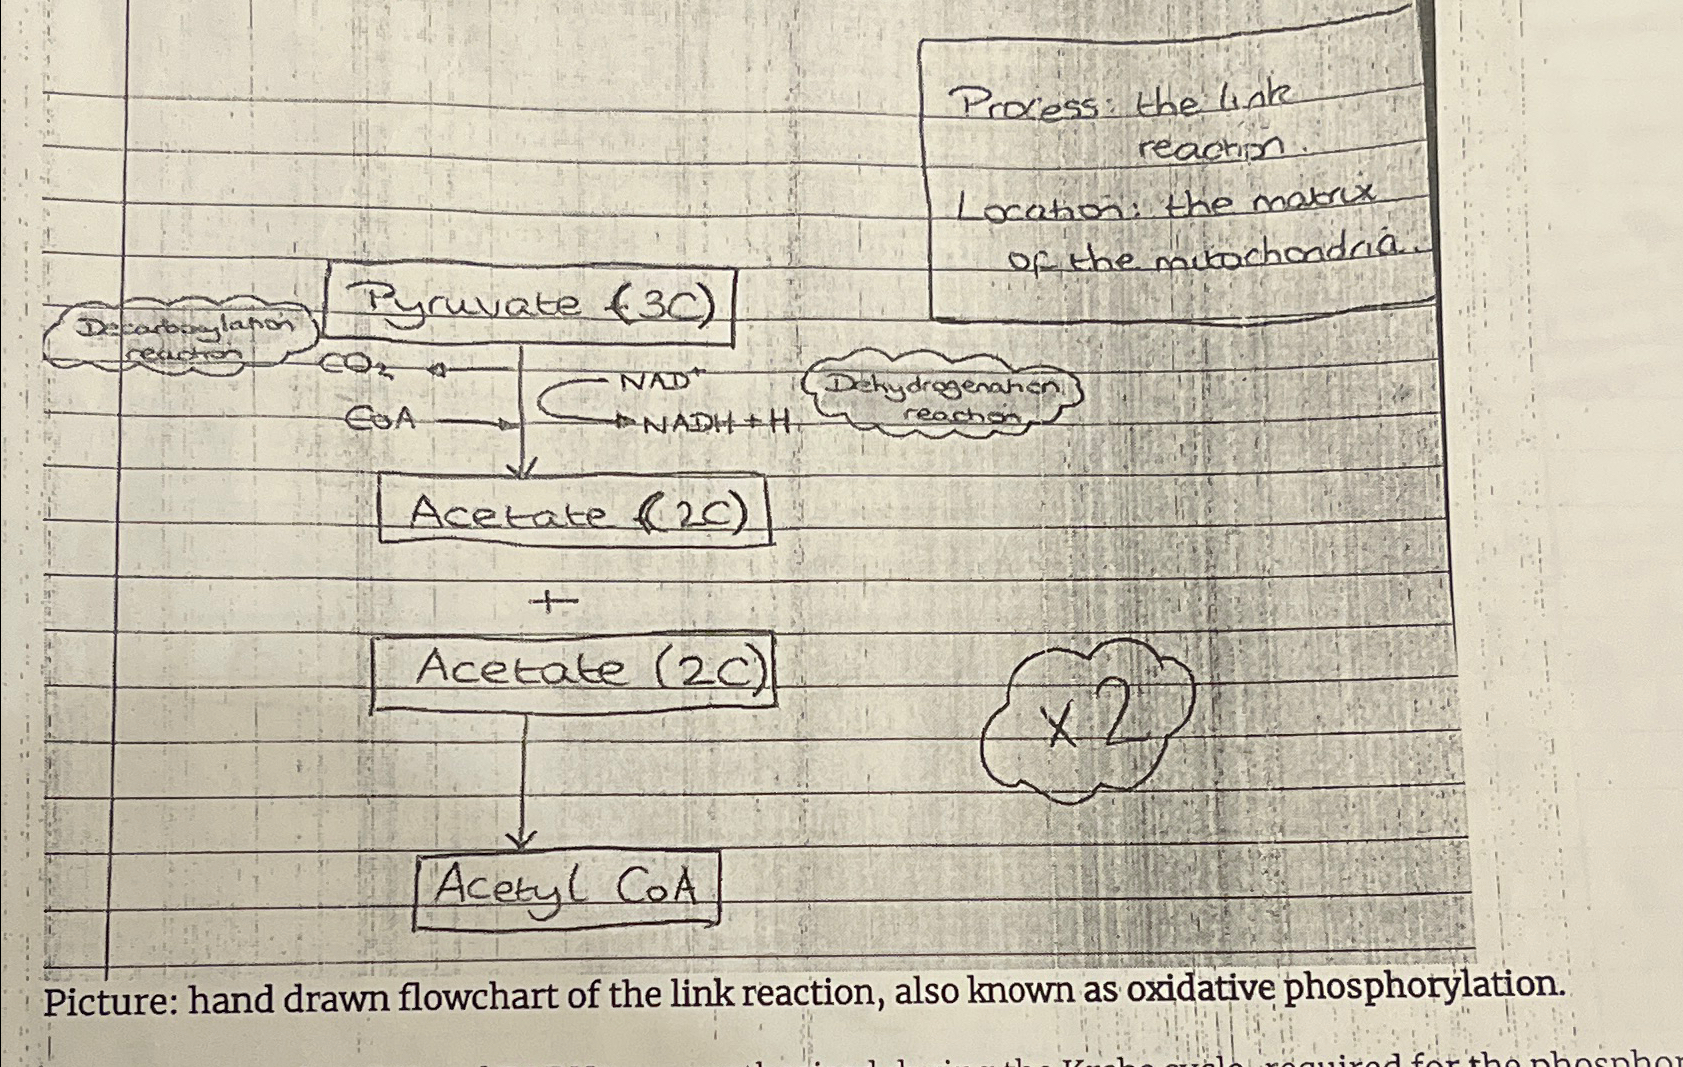 Process: the link
reaction.
Location: the matrix
of the mitochondria.
Pyruvate (3C)
Decarboxylation
reaction
CO₂
NAD⁺
CoA
NADH + H
Dehydrogenation
reaction
Acetate (2C)
+
Acetate (2C)
x 2
Acetyl CoA
Picture: hand drawn flowchart of the link reaction, also known as oxidative phosphorylation.
the Krebs cycle, required for the phosphor